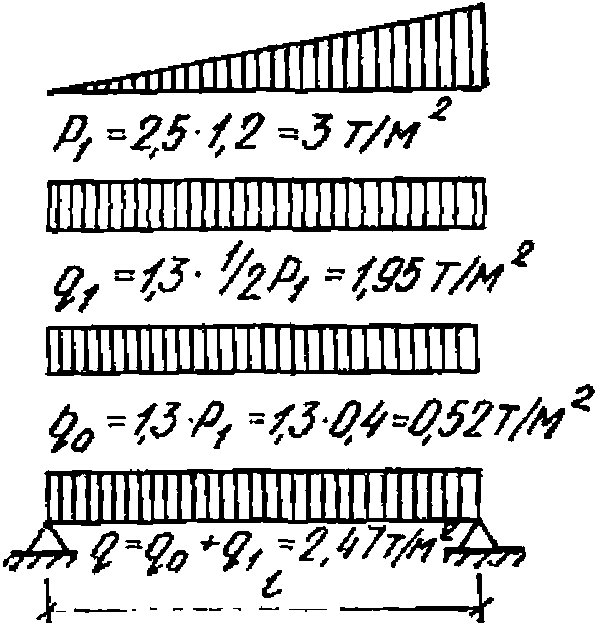 P₁ = 2,5·1,2 = 3 т/м²
q₁ = 1,3·1/2P₁ = 1,95 т/м²
q₀ = 1,3·P₁ = 1,3·0,4 = 0,52 т/м²
q = q₀ + q₁ = 2,47 т/м²
l